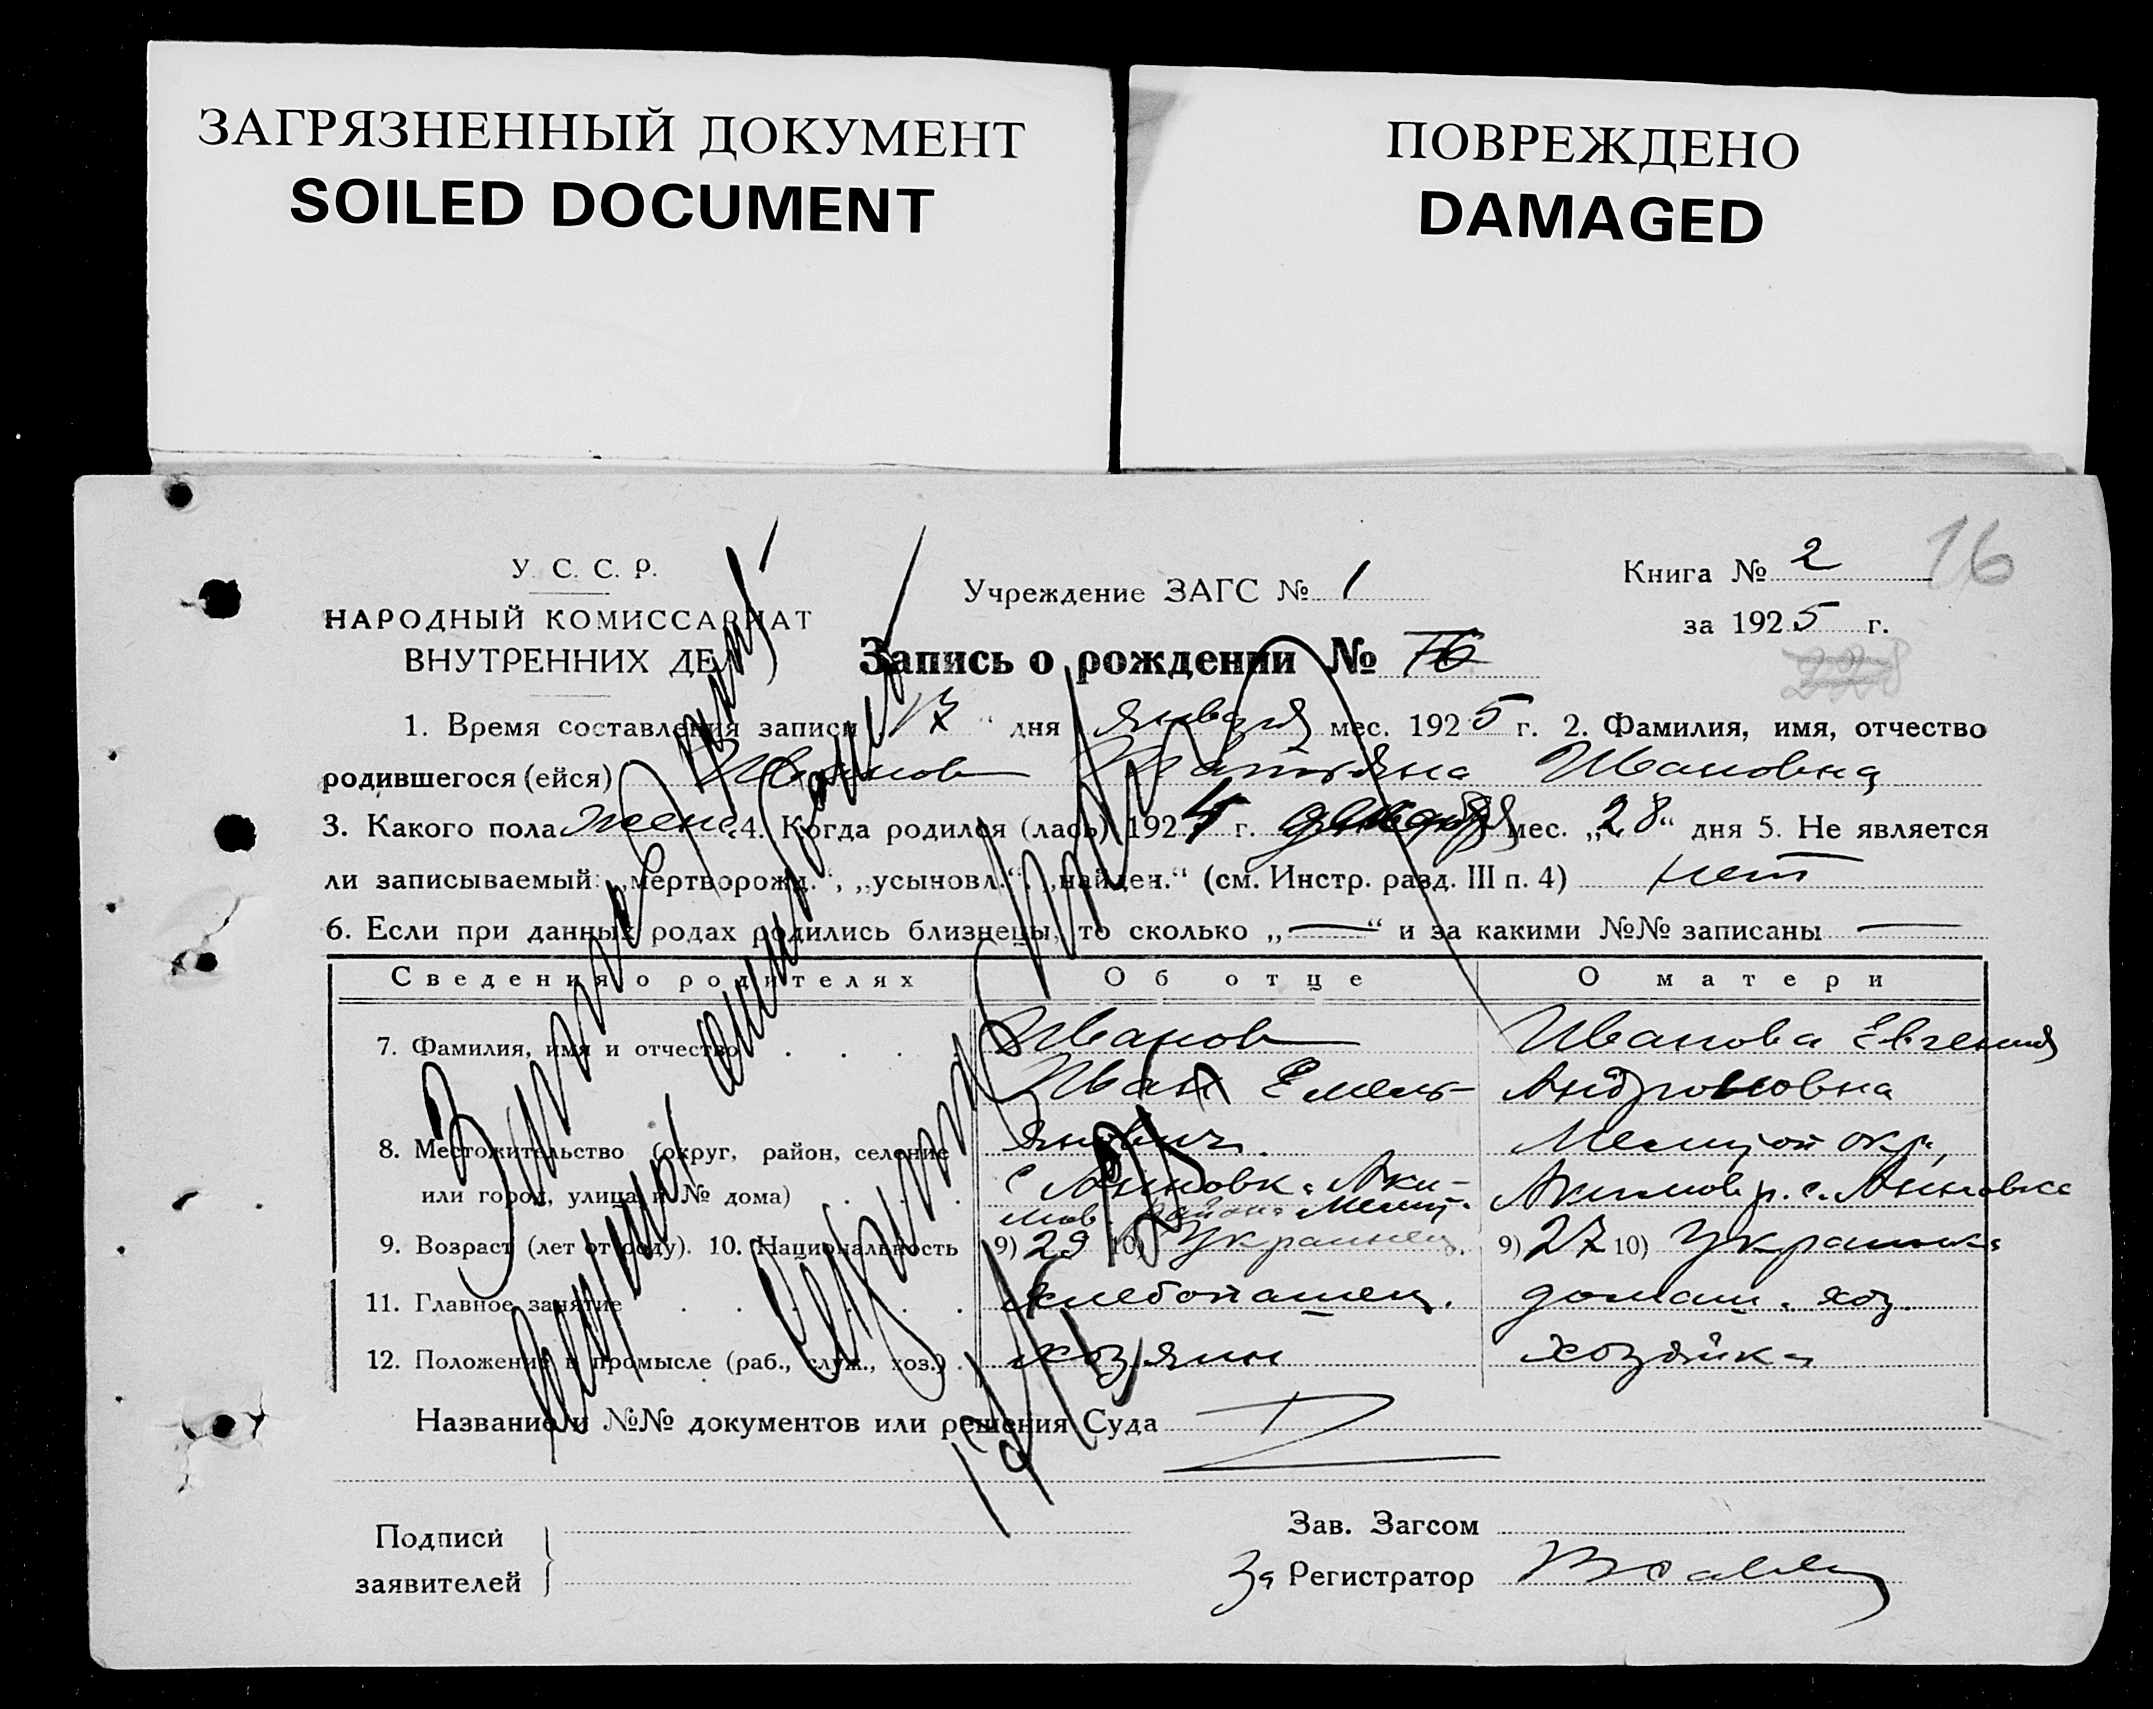 ЗАГРЯЗНЕННЫЙ ДОКУМЕНТ
SOILED DOCUMENT
ПОВРЕЖДЕНО
DAMAGED
У. С. С. Р.
НАРОДНЫЙ КОМИССАРИАТ
ВНУТРЕННИХ ДЕЛ
Учреждение ЗАГС № 1
Книга № 2
16
за 1925 г.
228
Запись о рождении № 76
1. Время составления записи 17 " дня января мес. 1925 г. 2. Фамилия, имя, отчество
родившегося (ейся) Иванов Татьяна Ивановна
3. Какого пола женс. 4. Когда родился (лась) 1924 г. мес. „28" дня 5. Не является
ли записываемый: „мертворожд.", „усыновл.", „найден." (см. Инстр. разд. III п. 4) нет
6. Если при данных родах родились близнецы, то сколько „—" и за какими №№ записаны —
Сведения о родителях Об отце О матери
7. Фамилия, имя и отчество Иванов Иванова Евгения
Иван Емель- Андроновна
8. Местожительство (округ, район, селение янович. Мелит. окр.
или город, улица и № дома) с Анновка Аки- Акимов р. с. Анновка
мов. района Мелит.
9. Возраст (лет от роду). 10. Национальность 9) 29 10) Украинец. 9) 27 10) Украинка
11. Главное занятие хлебопашец. домаш. хоз.
12. Положение в промысле (раб., служ., хоз.) хозяин хозяйка
Название и №№ документов или решения Суда
Подписи
заявителей
Зав. Загсом
За Регистратор